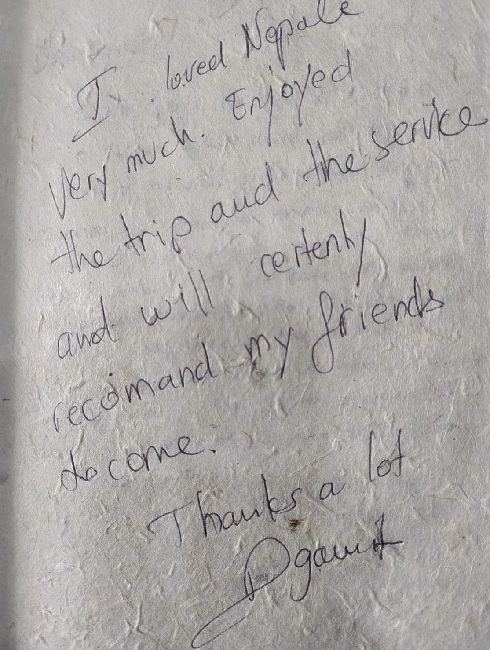 I loved Nepale
very much. Enjoyed
the trip and the service
and will certenly
recomand my friends
to come.
Thanks a lot